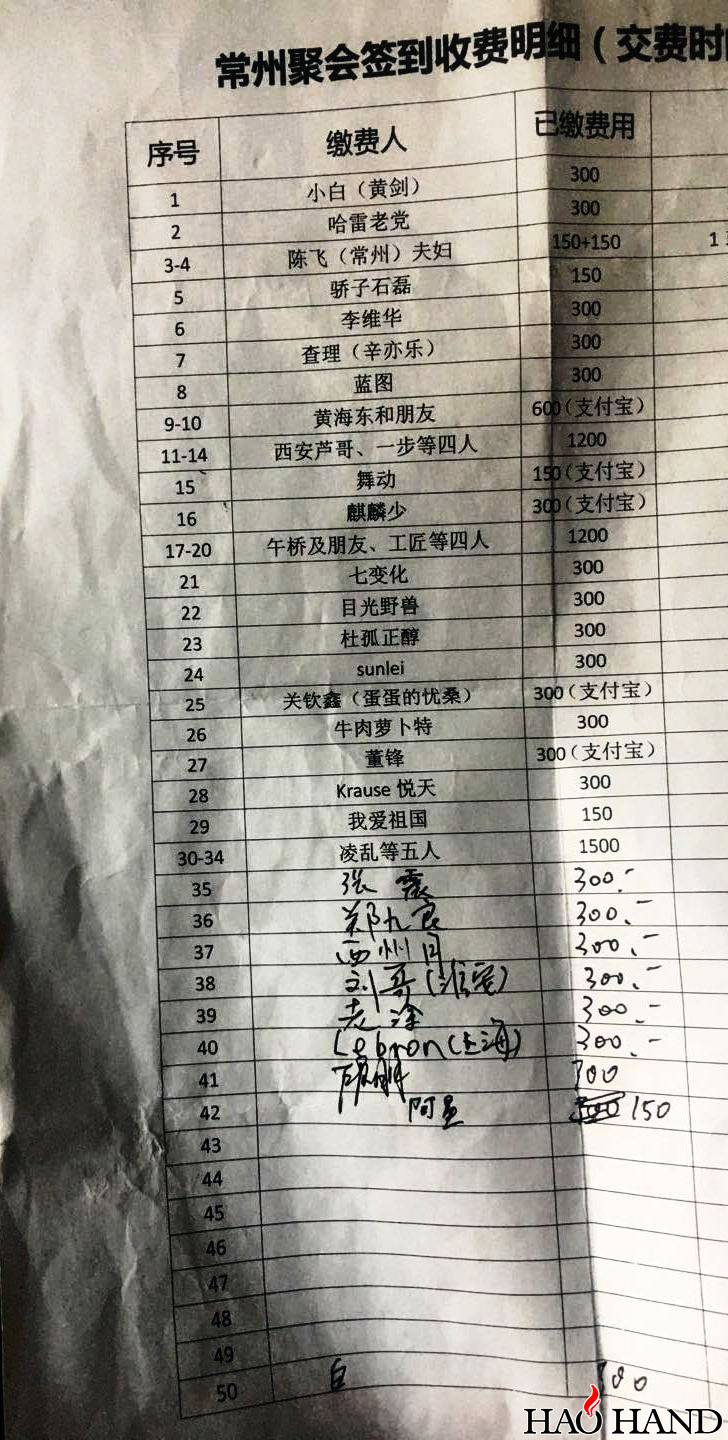 常州聚会签到收费明细（交费时
序号 缴费人 已缴费用
1 小白（黄剑） 300
2 哈雷老党 300
3-4 陈飞（常州）夫妇 150+150 1
5 骄子石磊 150
6 李维华 300
7 查理（辛亦乐） 300
8 蓝图 300
9-10 黄海东和朋友 600（支付宝）
11-14 西安芦哥、一步等四人 1200
15 舞动 150（支付宝）
16 麒麟少 300（支付宝）
17-20 午桥及朋友、工匠等四人 1200
21 七变化 300
22 目光野兽 300
23 杜孤正醇 300
24 sunlei 300
25 关钦鑫（蛋蛋的忧桑） 300（支付宝）
26 牛肉萝卜特 300
27 董锋 300（支付宝）
28 Krause 悦天 300
29 我爱祖国 150
30-34 凌乱等五人 1500
35 张震 300.-
36 郑九良 300.-
37 西州月 300.-
38 刘哥(淮安) 300.-
39 老涂 300.-
40 Lebron(上海) 300.-
41 300
42 阿星 150
43
44
45
46
47
48
49
50 白 300
HAO HAND